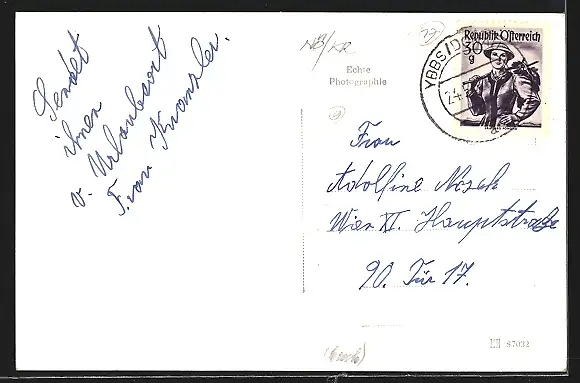 Sendet
ihnen
v. Urlaubsort
Frau Knanzler.
NÖ/KR
Echte
Photographie
Republik Österreich
30
g
YBBS/D
24.
Frau
Adolfine Nosek
Wien XI. Hauptstraße
90. Tür 17.
87032